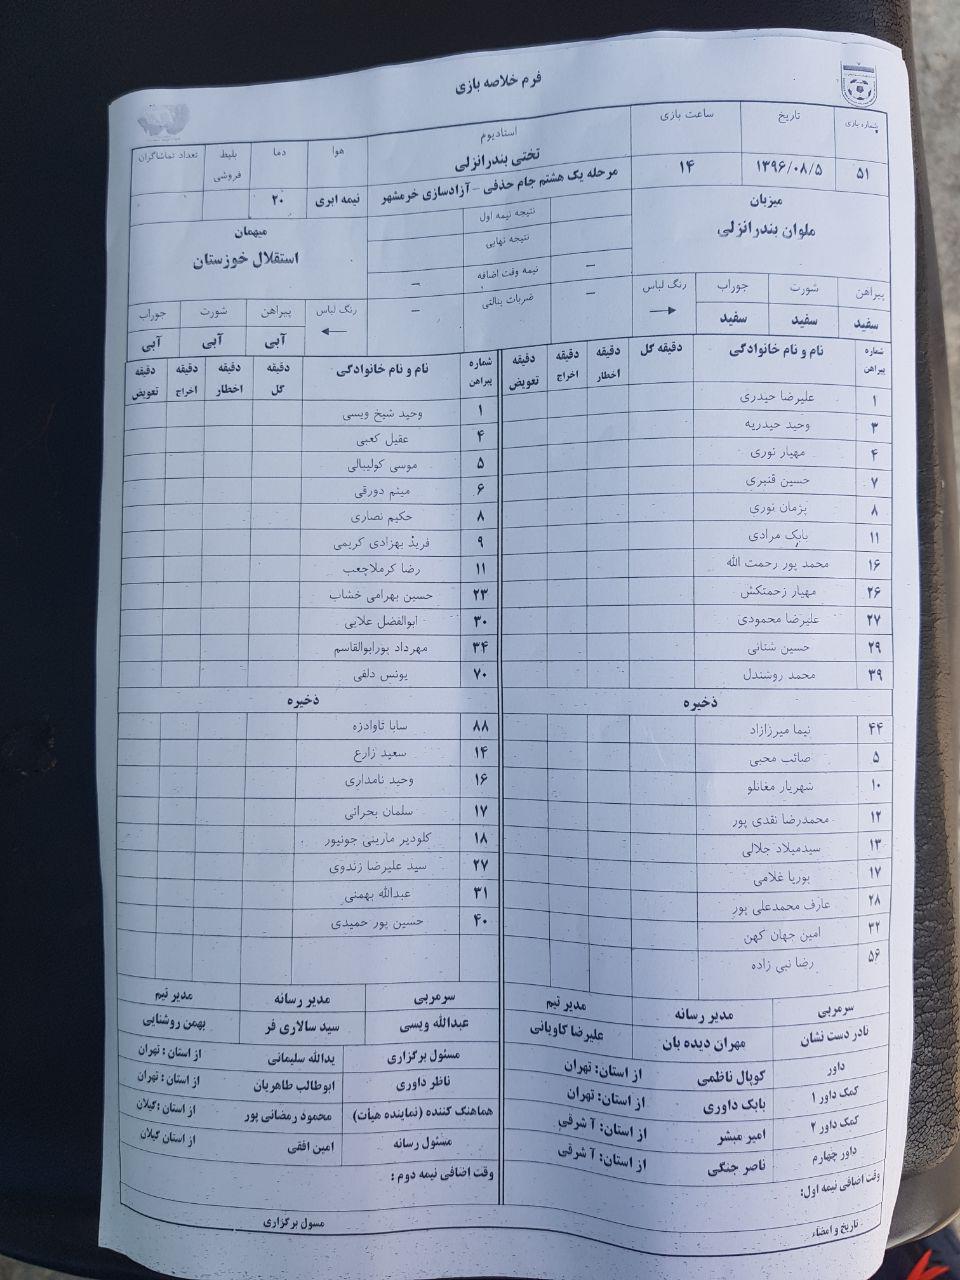 فرم خلاصه بازی
شماره بازی
تاریخ
ساعت بازی
استادیوم
هوا
دما
بلیط فروشی
تعداد تماشاگران
۵۱
۱۳۹۶/۰۸/۵
۱۴
تختی بندرانزلی
مرحله یک هشتم جام حذفی - آزادسازی خرمشهر
نیمه ابری
۲۰
میزبان
ملوان بندرانزلی
نتیجه نیمه اول
نتیجه نهایی
– نیمه وقت اضافه –
– ضربات پنالتی –
میهمان
استقلال خوزستان
پیراهن شورت جوراب رنگ لباس
سفید سفید سفید
رنگ لباس پیراهن شورت جوراب
آبی آبی آبی
شماره پیراهن نام و نام خانوادگی دقیقه گل دقیقه اخطار دقیقه اخراج دقیقه تعویض
۱ علیرضا حیدری
۳ وحید حیدریه
۴ مهیار نوری
۷ حسین قنبری
۸ پژمان نوری
۱۱ بابک مرادی
۱۶ محمد پور رحمت الله
۲۶ مهیار زحمتکش
۲۷ علیرضا محمودی
۲۹ حسین شنانی
۳۹ محمد روشندل
ذخیره
۴۴ نیما میرزازاد
۵ صائب محبی
۱۰ شهریار مغانلو
۱۲ محمدرضا نقدی پور
۱۳ سیدمیلاد جلالی
۱۷ پوریا غلامی
۲۸ عارف محمدعلی پور
۳۲ امین جهان کهن
۵۶ رضا نبی زاده
سرمربی مدیر رسانه مدیر تیم
نادر دست نشان مهران دیده بان علیرضا کاویانی
داور کوپال ناظمی از استان: تهران
کمک داور ۱ بابک داوری از استان: تهران
کمک داور ۲ امیر مبشر از استان: آ شرقی
داور چهارم ناصر جنگی از استان: آ شرقی
وقت اضافی نیمه اول:
تاریخ و امضاء
شماره پیراهن نام و نام خانوادگی دقیقه گل دقیقه اخطار دقیقه اخراج دقیقه تعویض
۱ وحید شیخ ویسی
۴ عقیل کعبی
۵ موسی کولیبالی
۶ میثم دورقی
۸ حکیم نصاری
۹ فرید بهزادی کریمی
۱۱ رضا کرملاچعب
۲۳ حسین بهرامی خشاب
۳۰ ابوالفضل علایی
۳۴ مهرداد پورابوالقاسم
۷۰ یونس دلفی
ذخیره
۸۸ سابا تاوادزه
۱۴ سعید زارع
۱۶ وحید نامداری
۱۷ سلمان بحرانی
۱۸ کلودیر مارینی جونیور
۲۷ سید علیرضا زندوی
۳۱ عبدالله بهمنی
۴۰ حسین پور حمیدی
سرمربی مدیر رسانه مدیر تیم
عبدالله ویسی سید سالاری فر بهمن روشنایی
مسئول برگزاری یدالله سلیمانی از استان : تهران
ناظر داوری ابوطالب طاهریان از استان : تهران
هماهنگ کننده (نماینده هیأت) محمود رمضانی پور از استان :گیلان
مسئول رسانه امین افقی از استان گیلان
وقت اضافی نیمه دوم :
مسول برگزاری